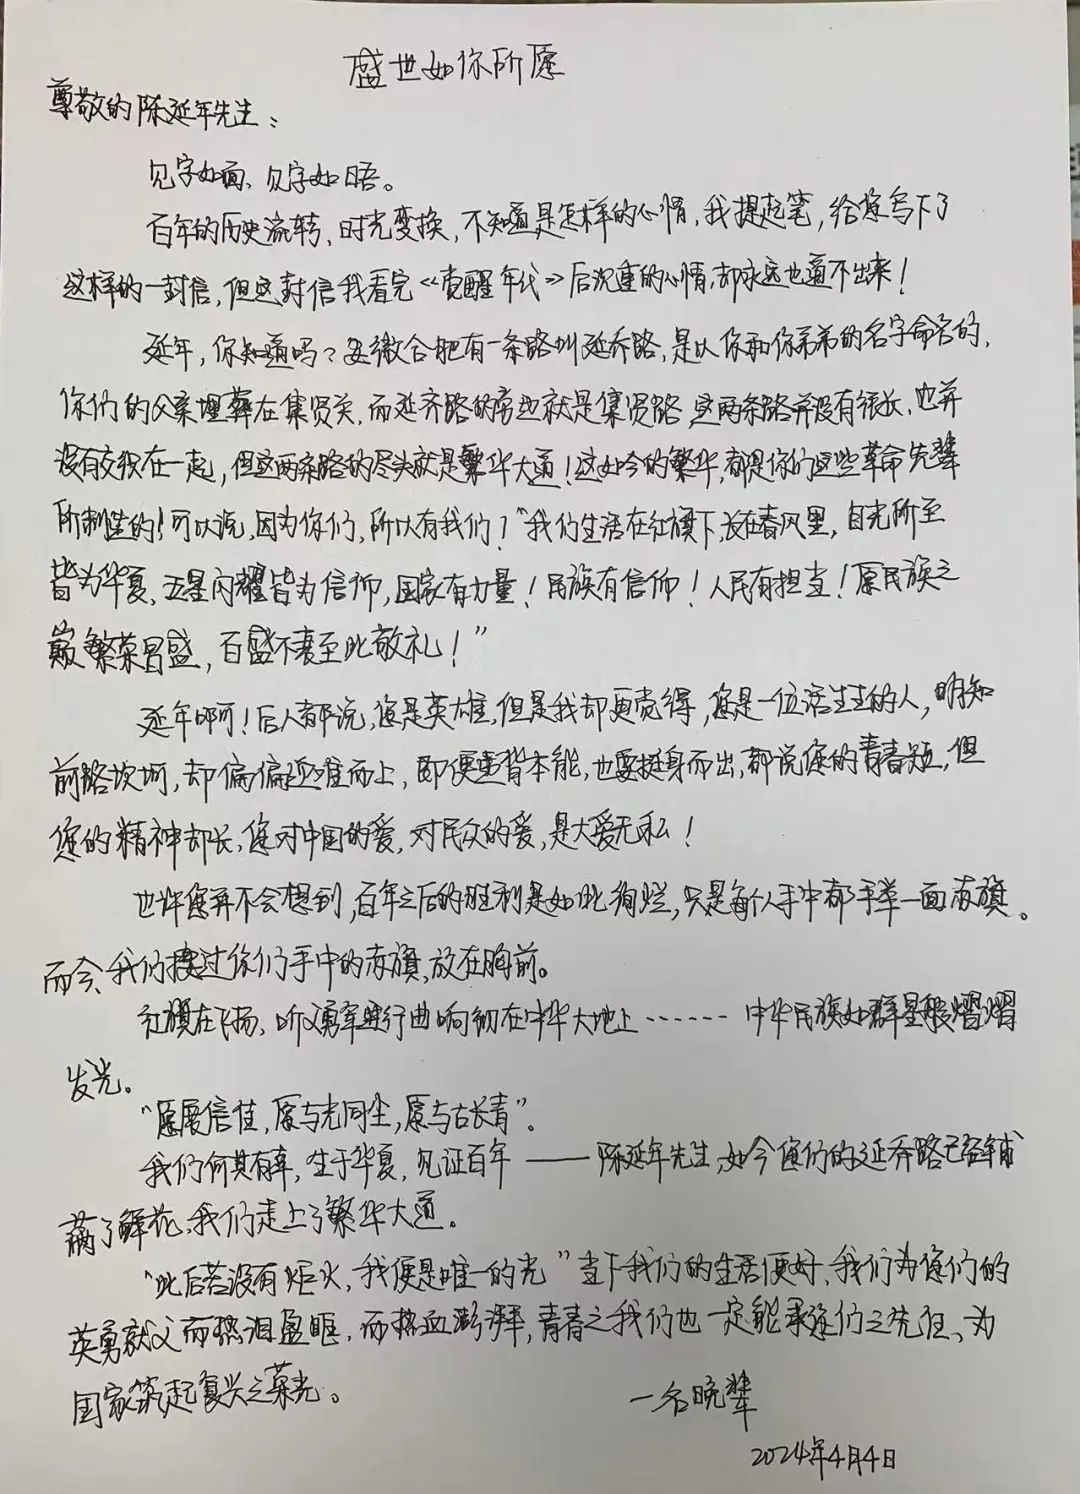 盛世如你所愿
尊敬的陈延年先生：
见字如面、见字如晤。
百年的历史流转，时光变换，不知道是怎样的心情，我提起笔，给您写下了
这样的一封信，但这封信我看完《觉醒年代》后沉重的心情，却永远也道不出来！
延年，你知道吗？安徽合肥有一条路叫延乔路，是以你和你弟弟的名字命名的，
你们的父亲埋葬在集贤关，而延乔路的旁边就是集贤路，这两条路并没有很长，也并
没有交织在一起，但这两条路的尽头就是繁华大道！这如今的繁华，都是你们这些革命先辈
所制造的！可以说，因为你们，所以有我们！“我们生活在红旗下，长在春风里，目光所至
皆为华夏，五星闪耀皆为信仰，国家有力量！民族有信仰！人民有担当！愿民族之
巅繁荣昌盛，百盛不衰至此敬礼！”
延年啊！后人都说，您是英雄，但是我却更觉得，您是一位活生生的人，明知
前路坎坷，却偏偏迎难而上，即便违背本能，也要挺身而出，都说您的青春短，但
您的精神却长，您对中国的爱，对民众的爱，是大爱无私！
也许您并不会想到，百年之后的胜利是如此绚烂，只是每个人手中都手举一面赤旗。
而今、我们接过你们手中的赤旗，放在胸前。
红旗在飞扬，听义勇军进行曲响彻在中华大地上……中华民族如群星般熠熠
发光。
“愿展信佳，愿与光同尘，愿与古长青”。
我们何其有幸，生于华夏，见证百年——陈延年先生，如今您们的延乔路已经铺
满了鲜花，我们走上了繁华大道。
“此后若没有炬火，我便是唯一的光”当下我们的生活便好，我们为您们的
英勇就义而热泪盈眶，而热血澎湃，青春之我们也一定能承您们之先任、为
国家筑起复兴之荣光。
一名晚辈
2024年4月4日